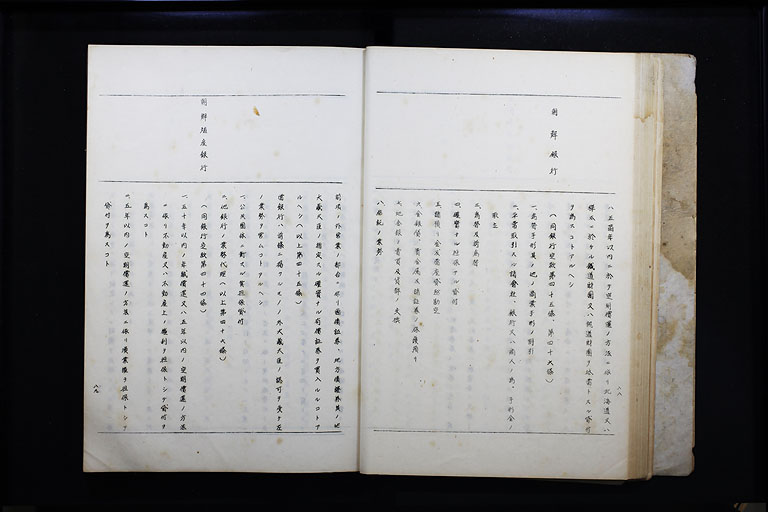 八、五箇年以内ニ於テ定期償還ノ方法ニ依リ北海道又ハ
樺太ニ於ケル鐵道財團又ハ軌道財團ヲ抵當トスル貸付
ヲ為スコトアルヘシ
朝鮮銀行
(同銀行定款第四十五條、第四十六條)
一、為替手形其ノ他ノ商業手形ノ割引
二、平常取引スル諸會社、銀行又ハ商人ノ為、手形金ノ
取立
三、為替及荷為替
四、確實ナル擔保アル貸付
五、諸預リ金及當座貸越勘定
六、金銀貨、貴金屬及諸証券ノ保護預リ
七、地金銀ノ賣買及貨幣ノ交換
八、信託ノ業務
前項ノ外營業ノ都合ニ依リ國債証券、地方債証券其ノ他
大藏大臣ノ指定スル確實ナル有價証券ヲ買入ルルコトア
ルヘシ(以上第四十五條)
當銀行ハ前條ニ揭クルモノノ外大藏大臣ノ認可ヲ受ケ左
ノ業務ヲ營ムコトアルヘシ
一、公共團体ニ對スル無擔保貸付
二、他銀行ノ業務代理(以上第四十六條)
朝鮮殖產銀行
(同銀行定款第四十四條)
一、五十年以内ノ年賦償還又ハ五年以内ノ定期償還ノ方法
ニ依リ不動產又ハ不動產上ノ權利ヲ擔保トシテ貸付ヲ
為スコト
二、五年以内ノ定期償還ノ方法ニ依リ漁業權ヲ擔保トシテ
貸付ヲ為スコト
八九